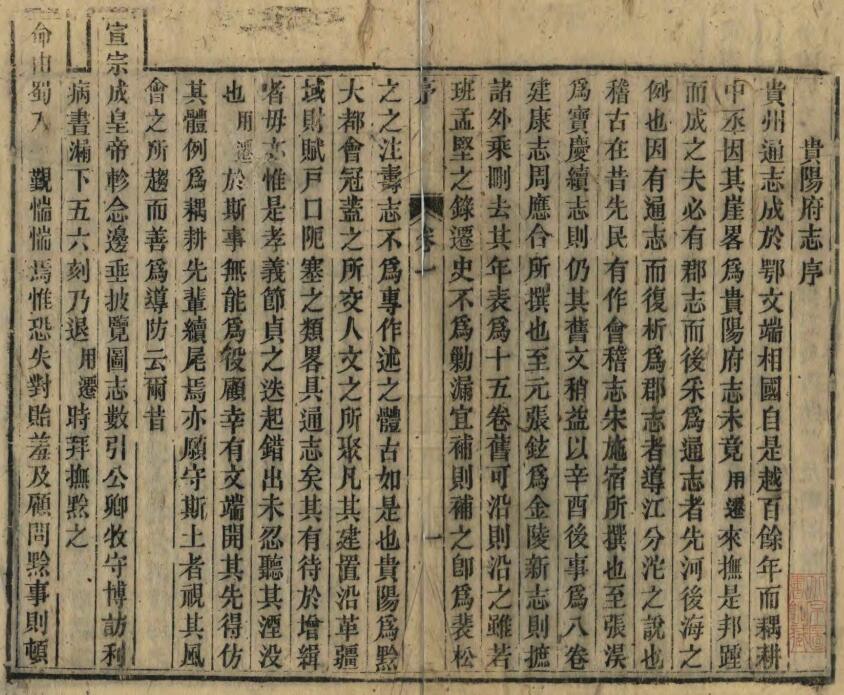 貴陽府志序
貴州通志成於鄂文端相國自是越百餘年而耦耕
中丞因其崖畧為貴陽府志未竟用遷來撫是邦踵
而成之夫必有郡志而後采為通志者先河後海之
例也因有通志而復析為郡志者導江分沱之說也
稽古在昔先民有作會稽志宋施宿所撰也至張淏
為寶慶續志則仍其舊文稍益以辛酉後事為八卷
建康志周應合所撰也至元張鉉為金陵新志則摭
諸外乘刪去其年表為十五卷舊可沿則沿之雖若
班孟堅之錄遷史不為勦漏宜補則補之卽為裴松
序 卷 一
之之注壽志不為專作述之體古如是也貴陽為黔
大都會冠蓋之所交人文之所聚凡其建置沿革疆
域財賦戸口阨塞之類畧具通志矣其有待於增緝
者毋亦惟是孝義節貞之迭起錯出未忍聽其湮没
也用遷於斯事無能為役顧幸有文端開其先得仿
其體例為耦耕先輩續尾焉亦願守斯土者視其風
會之所趨而善為導防云爾昔
宣宗成皇帝軫念邊垂披覽圖志數引公卿牧守博訪利
病晝漏下五六刻乃退用遷時拜撫黔之
命由蜀入覲惴惴焉惟恐失對貽羞及顧問黔事則頓